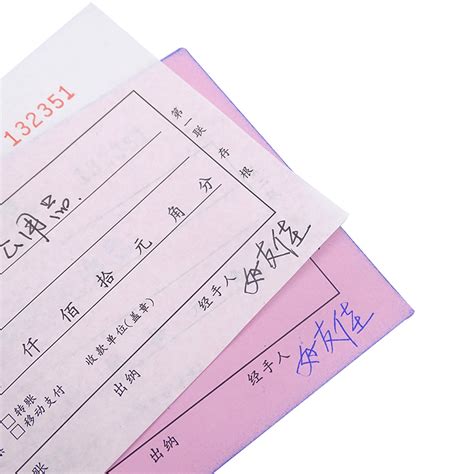 132351
第一联 存根
公用品
仟佰拾元角分
收款单位(盖章)
经手人
转账
移动支付
出纳
经手人
出纳